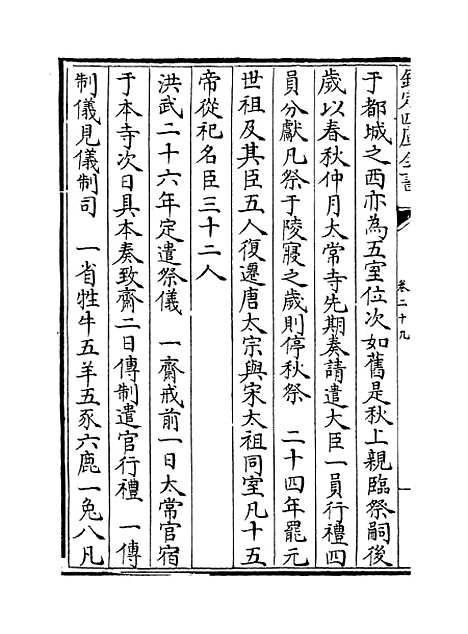 欽定四庫全書
卷二十九
于都城之西亦為五室位次如舊是秋上親臨祭嗣後
歲以春秋仲月太常寺先期奏請遣大臣一員行禮四
員分獻凡祭于陵寢之歲則停秋祭　二十四年罷元
世祖及其臣五人復遷唐太宗與宋太祖同室凡十五
帝從祀名臣三十二人
洪武二十六年定遣祭儀　一齋戒前一日太常官宿
于本寺次日具本奏致齋二日傳制遣官行禮　一傳
制儀見儀制司　一省牲牛五羊五豕六鹿一兔八凡